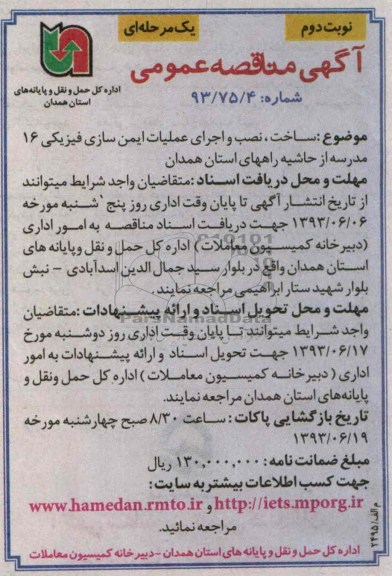 نوبت دوم
یک مرحله‌ای
آگهی مناقصه عمومی
شماره: ۹۳/۷۵/۴
اداره کل حمل و نقل و پایانه‌های
استان همدان
موضوع : ساخت ، نصب و اجرای عملیات ایمن سازی فیزیکی ۱۶
مدرسه از حاشیه راههای استان همدان
مهلت و محل دریافت اسناد : متقاضیان واجد شرایط میتوانند
از تاریخ انتشار آگهی تا پایان وقت اداری روز پنج شنبه مورخه
۱۳۹۳/۰۶/۰۶ جهت دریافت اسناد مناقصه به امور اداری
(دبیرخانه کمیسیون معاملات ) اداره کل حمل و نقل و پایانه های
استان همدان واقع در بلوار سید جمال الدین اسدآبادی - نبش
بلوار شهید ستار ابراهیمی مراجعه نمایند.
مهلت و محل تحویل اسناد و ارائه پیشنهادات : متقاضیان
واجد شرایط میتوانند تا پایان وقت اداری روز دوشنبه مورخ
۱۳۹۳/۰۶/۱۷ جهت تحویل اسناد و ارائه پیشنهادات به امور
اداری ( دبیرخانه کمیسیون معاملات ) اداره کل حمل ونقل و
پایانه‌های استان همدان مراجعه نمایند.
تاریخ بازگشایی پاکات : ساعت ۸/۳۰ صبح چهارشنبه مورخه
۱۳۹۳/۰۶/۱۹
مبلغ ضمانت نامه : ۱۳۰,۰۰۰,۰۰۰ ریال
جهت کسب اطلاعات بیشتر به سایت :
http://iets.mporg.ir و www.hamedan.rmto.ir
مراجعه نمائید.
اداره کل حمل و نقل و پایانه های استان همدان - دبیرخانه کمیسیون معاملات
م الف/۲۴۹۵